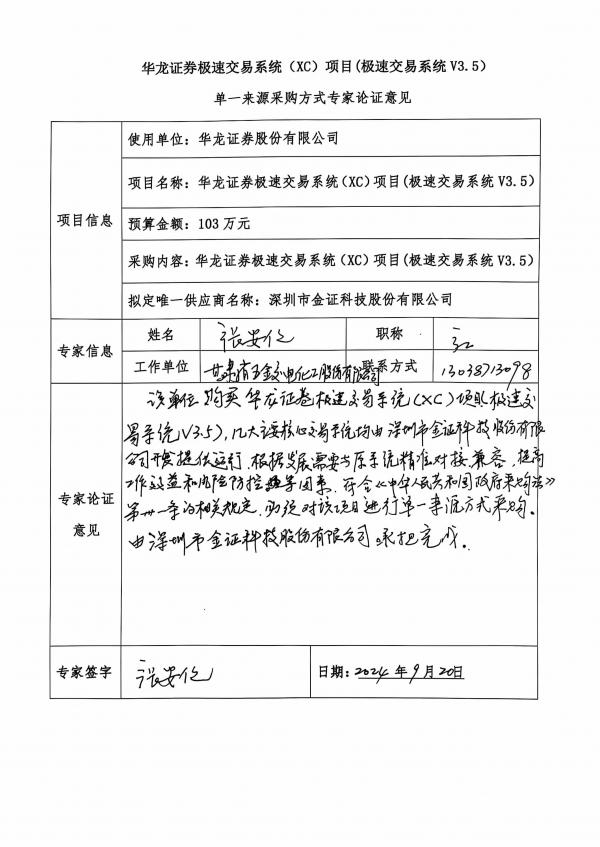 华龙证券极速交易系统（XC）项目(极速交易系统 V3.5)
单一来源采购方式专家论证意见
项目信息
使用单位：华龙证券股份有限公司
项目名称：华龙证券极速交易系统（XC）项目(极速交易系统 V3.5)
预算金额：103 万元
采购内容：华龙证券极速交易系统（XC）项目(极速交易系统 V3.5)
拟定唯一供应商名称：深圳市金证科技股份有限公司
专家信息
姓名 张安 职称
工作单位 甘肃省五金交电化工股份有限公司 联系方式 13038713098
专家论证
意见
该单位购买华龙证卷极速交易系统(XC)项眅极速交
易系统V3.5)，几大主要核心交易系统均由深圳市金证科技股份有限
公司开发提供运行，根据发展需要与原系统精准对接、兼容，提高
工作效益和风险防控等因素，符合《中华人民共和国政府采购法》
第卅一条的相关规定，必须对该项目进行单一来源方式采购。
由深圳市金证科技股份有限公司承担完成。
专家签字 张安 日期：2024 年 9 月 20日